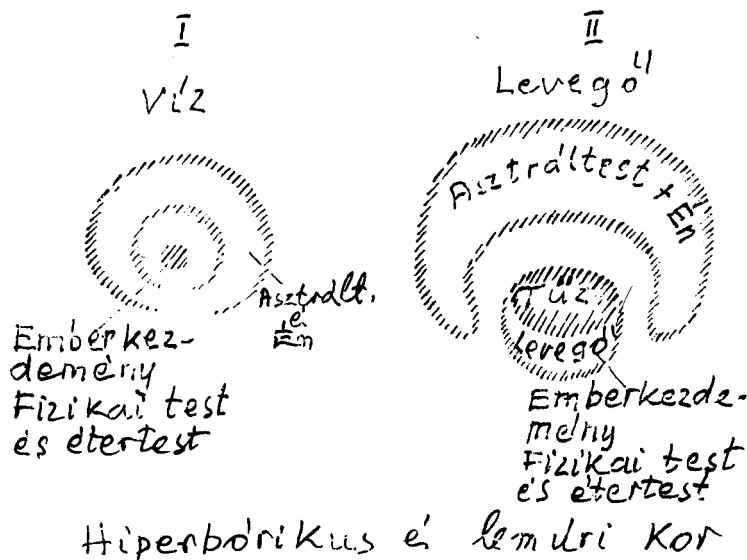 I
Víz
Asztrált.
é
Én
Emberkez-
demény
Fizikai test
és étertest
II
Levegő
Asztráltest + Én
Tűz
Levegő
Emberkezde-
mény
Fizikai test
és étertest
Hiperbórikus é lemuri kor